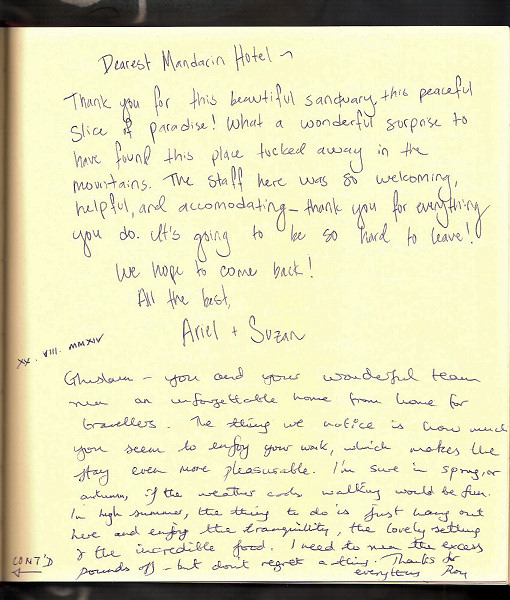 Dearest Mandarin Hotel ~
Thank you for this beautiful sanctuary, this peaceful
slice of paradise! What a wonderful surprise to
have found this place tucked away in the
mountains. The staff here was so welcoming,
helpful, and accomodating - thank you for everything
you do. It's going to be so hard to leave!
We hope to come back!
All the best,
Ariel + Suzan
XX. VIII. MMXIV
Ghislain - you and your wonderful team
run an unforgettable home from home for
travellers. The thing we notice is how much
you seem to enjoy your work, which makes the
stay even more pleasurable. I'm sure in spring, or
autumn, if the weather cools walking would be fun.
In high summer, the thing to do is just hang out
here and enjoy the tranquillity, the lovely setting
& the incredible food. I need to run the excess
pounds off - but don't regret a thing. Thanks for
everything Roy
CONT'D